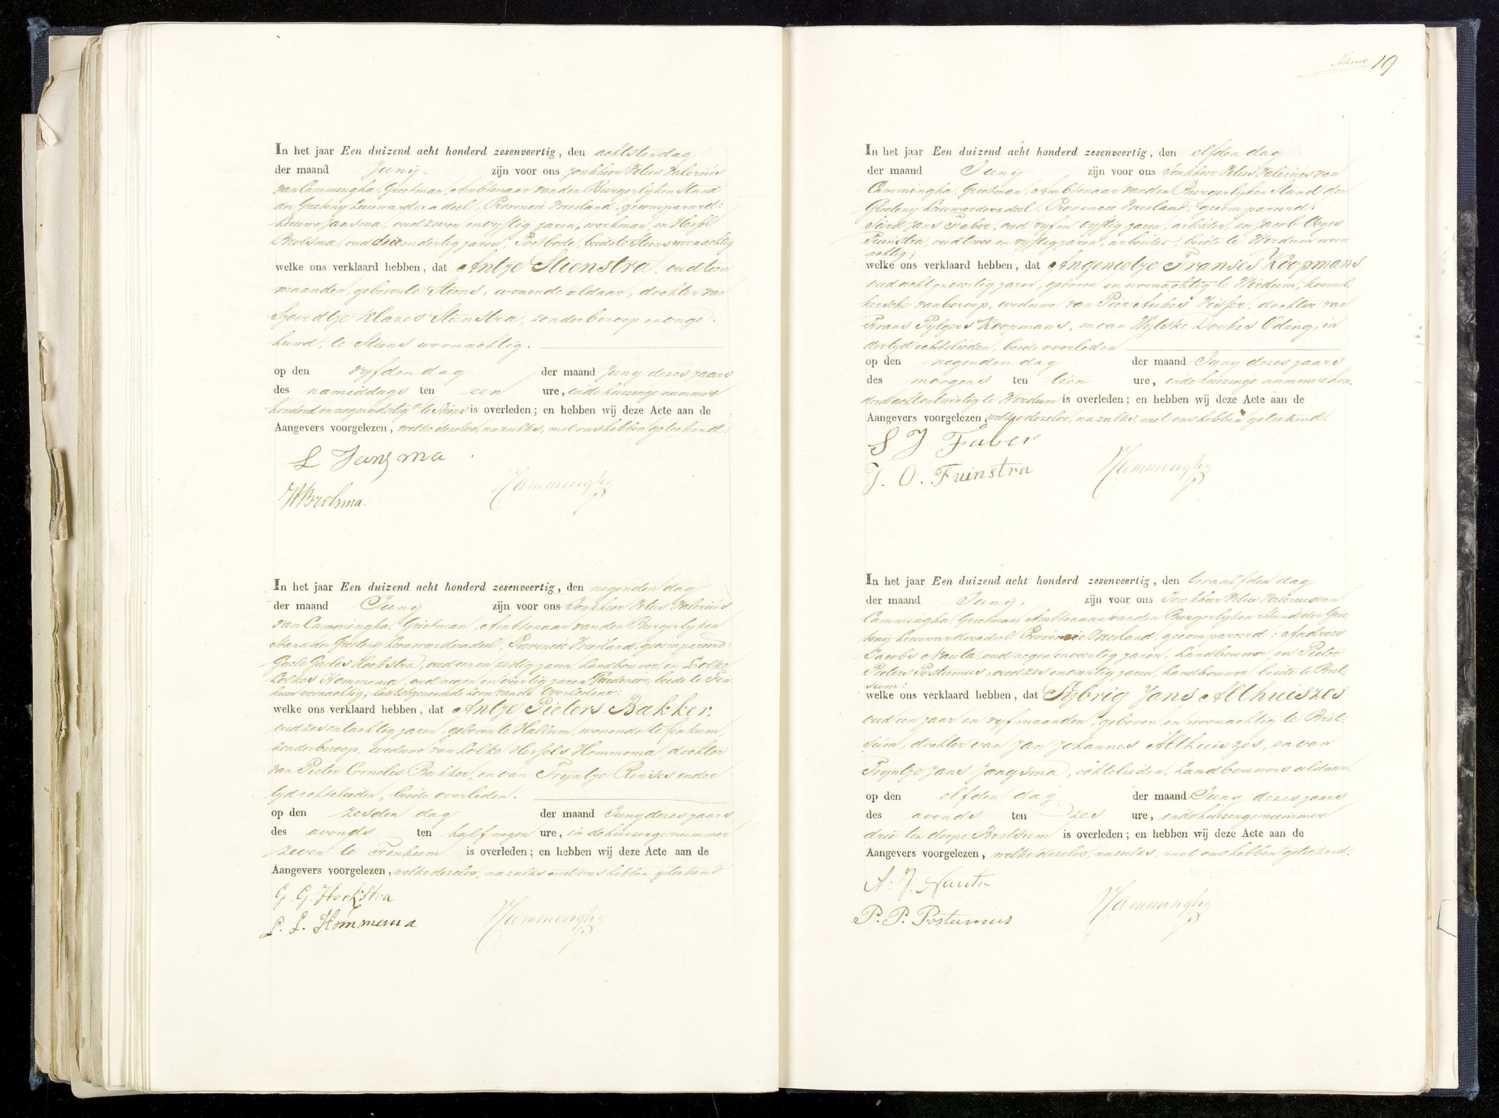 In het jaar Een duizend acht honderd zesenveertig, den achtsten dag
der maand Juny. zijn voor ons Jonkheer Vitus Valerius
van Cammingha, Grietman, Ambtenaar van den Burgerlijken Stand
der Grieteny Leeuwarderadeel, Provincie Vriesland, gecompareerd:
Jansma, oud zeven en vyftig jaren, werkman, en
oud drieenderlig jaren, Postbode, beide te Stiens woonachtig
welke ons verklaard hebben, dat Antje Steenstra, oud tien
maanden, geboren te Stiens, wonende aldaar, dochter van
Sjoerdtje Klazes Steenstra, zonder beroep en onge-
huwd, te Stiens woonachtig.
op den vyfden dag der maand Juny dezes jaars
des namiddags ten een ure, in de huizinge nummer
honderd en negenentig te Stiens is overleden; en hebben wij deze Acte aan de
Aangevers voorgelezen, welke dezelve, nazulks, met ons hebben geteekend.
L Jansma
H Brolsma.
VCammingha
In het jaar Een duizend acht honderd zesenveertig, den negenden dag
der maand Juny zijn voor ons Jonkheer Vitus Valerius
van Cammingha, Grietman, Ambtenaar van den Burgerlyken
Stand der Grieteny Leeuwarderadeel, Provincie Vriesland, gecompareerd:
Hoekstra, oud een en zestig jaren, landbouwer, en
Lolkes Hommema, oud negen en veertig jaren, beide te
woonachtig, laatstgenoemde zoon van de Overledene:
welke ons verklaard hebben, dat Antje Pieters Bakker,
oud zes en tachtig jaren, geboren te Hallum, wonende te Jenkum,
zonder beroep, weduwe van Lolke Hessels Hommema, dochter
van Pieter Cornelis Bakker, en van Tryntje Reinses in der
tyd echtelieden, beide overleden.
op den zesden dag der maand Juny dezes jaars
des avonds ten half negen ure, in de huizinge nummer
zeven te is overleden; en hebben wij deze Acte aan de
Aangevers voorgelezen, welke dezelve, nazulks met ons hebben geteekend
G. G. Hoekstra
P. L. Hommema
VCammingha
19
In het jaar Een duizend acht honderd zesenveertig, den elfden dag
der maand Juny zijn voor ons Jonkheer Vitus Valerius van
Cammingha, Grietman, Ambtenaar van den Burgerlyken Stand der
Grieteny Leeuwarderadeel, Provincie Vriesland, gecompareerd:
Jans Faber, oud vyf en vyftig jaren, arbeider, en Jacob
Fuinstra, oud twee en vyftig jaren, arbeider, beide te Wirdum woon-
achtig;
welke ons verklaard hebben, dat Angenietje Franses Koopmans
oud acht en veertig jaren, geboren en woonachtig te Wirdum,
van beroep, weduwe van Visser, dochter van
Frans Sytzes Koopmans, en van Hylkje Douwes in
der tyd echtelieden, beide overleden
op den negenden dag der maand Juny dezes jaars
des morgens ten tien ure, in de huizinge nummer
te Wirdum is overleden; en hebben wij deze Acte aan de
Aangevers voorgelezen, welke dezelve, nazulks, met ons hebben geteekend.
S J Faber
J. O. Fuinstra
VCammingha
In het jaar Een duizend acht honderd zesenveertig, den twaalfden dag
der maand Juny, zijn voor ons Jonkheer Vitus Valerius van
Cammingha Grietman Ambtenaar van den Burgerlyken Stand der Grie-
teny Leeuwarderadeel Provincie Vriesland, gecompareerd: Andries
Jacobs Nauta oud negen en veertig jaren, landbouwer en Pieter
Pieters Postumus, oud zes en veertig jaren, landbouwer, beide te Brit-
sum:
welke ons verklaard hebben, dat Sybrig Jans Althuiszes
oud een jaar en vyf maanden, geboren en woonachtig te Brit-
sum, dochter van Jan Johannes Althuiszes, en van
Tryntje Jans Jongsma, echtelieden, landbouwers aldaar
op den elfden dag der maand Juny dezes jaars
des avonds ten zes ure, in de huizinge nummer
drie ten dorpe Britsum is overleden; en hebben wij deze Acte aan de
Aangevers voorgelezen, welke dezelve, nazulks, met ons hebben geteekend.
A. J. Nauta
P. P. Postumus
VCammingha